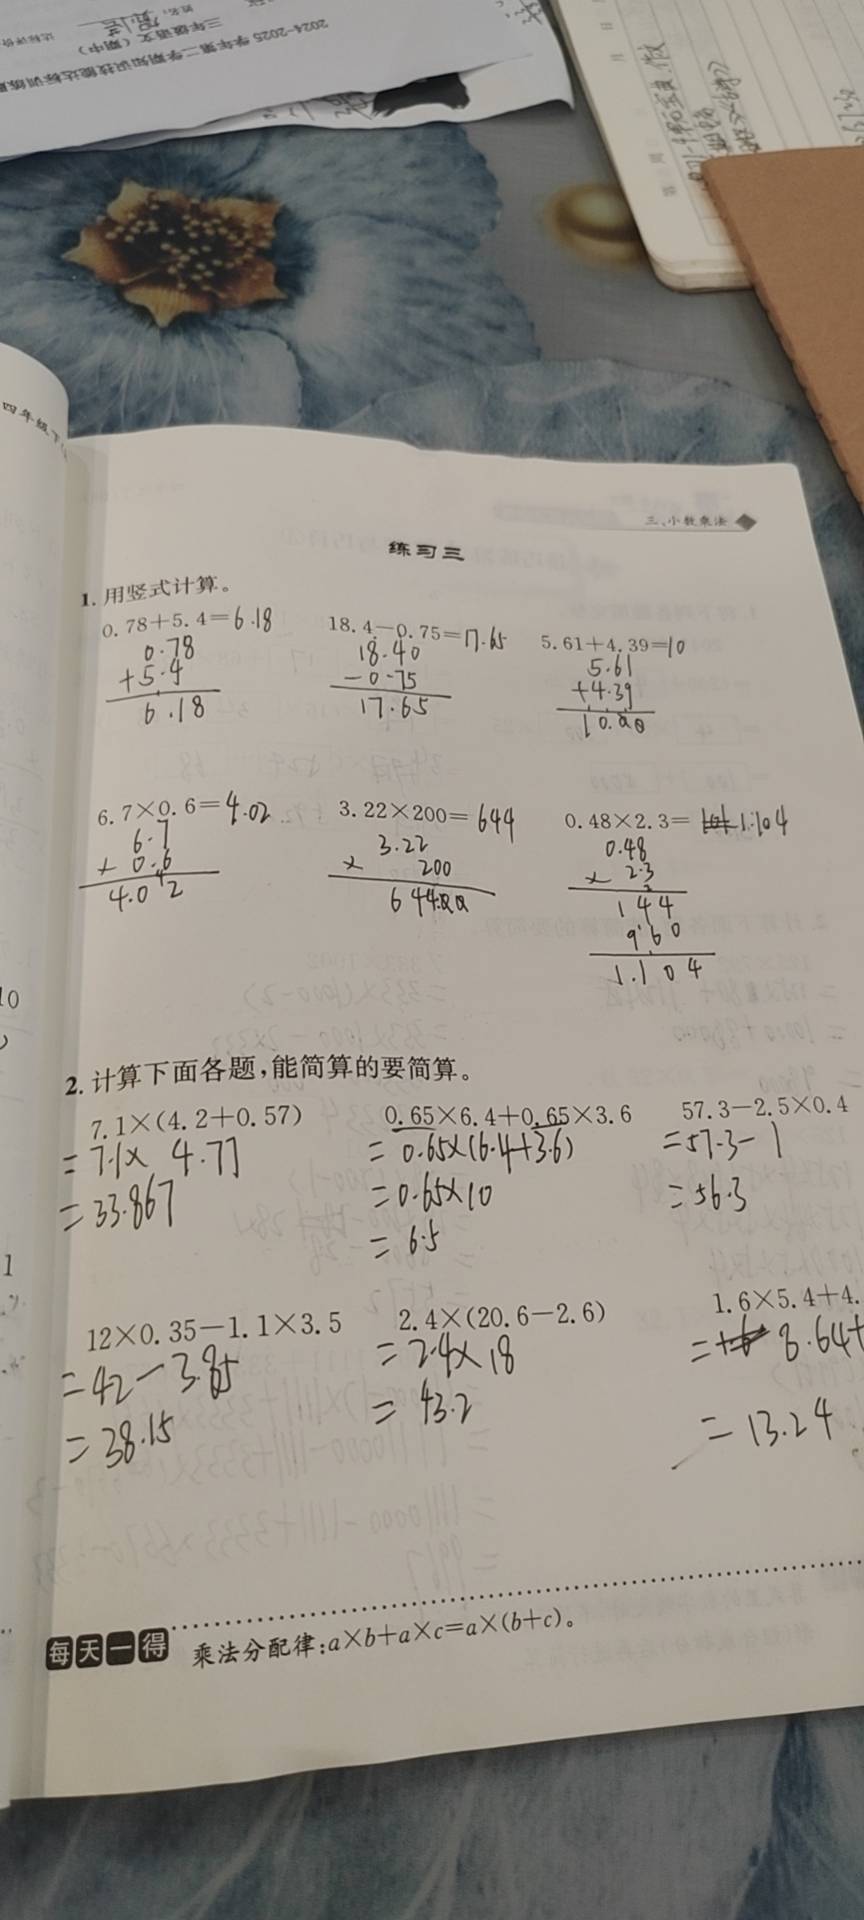 2024-2025学年第二学期知识技能达标训练
三年级语文（期中）
姓名：
四年级下
三、小数乘法
练习三
1. 用竖式计算。
0.78+5.4=6.18
18.4-0.75=17.65
5.61+4.39=10
0.78
+5.4
6.18
18.40
-0.75
17.65
5.61
+4.39
10.00
6.7×0.6=4.02
3.22×200=644
0.48×2.3=1.104
6.7
× 0.6
4.02
3.22
× 200
644.00
0.48
× 2.3
144
960
1.104
2. 计算下面各题，能简算的要简算。
7.1×(4.2+0.57)
=7.1× 4.77
=33.867
0.65×6.4+0.65×3.6
=0.65×(6.4+3.6)
=0.65×10
=6.5
57.3-2.5×0.4
=57.3-1
=56.3
12×0.35-1.1×3.5
=42-3.85
=38.15
2.4×(20.6-2.6)
=2.4×18
=43.2
1.6×5.4+4.
=8.64+
=13.24
每天一得
乘法分配律：a×b+a×c=a×(b+c)。